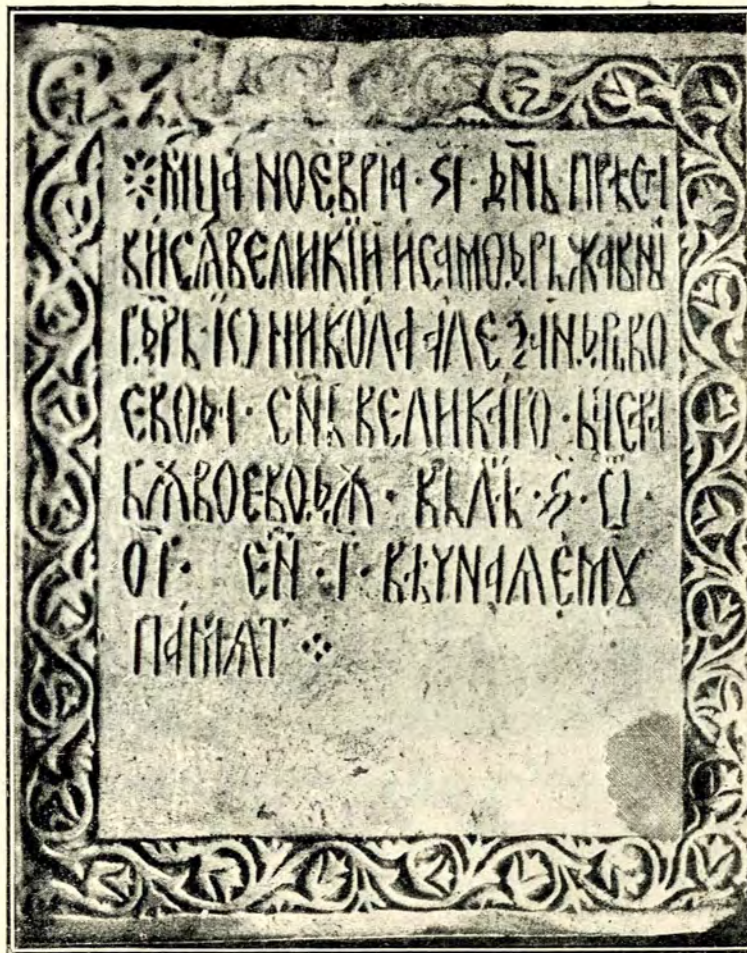 м҃ца ноеврїа · ѕ҃ı · дн҃ь прѣста
ви сѧ великїи и самодръжавнı
г҃дрь · їѡ николаа алеѯандръ во
евода · сн҃ь великаго · баисра
бѫ воеводѫ · въ л҃ѣ · ҂ѕ҃ · ѡ҃ ·
о҃г · ен҃ · г҃ · вѣчнаа емꙋ
памѧт